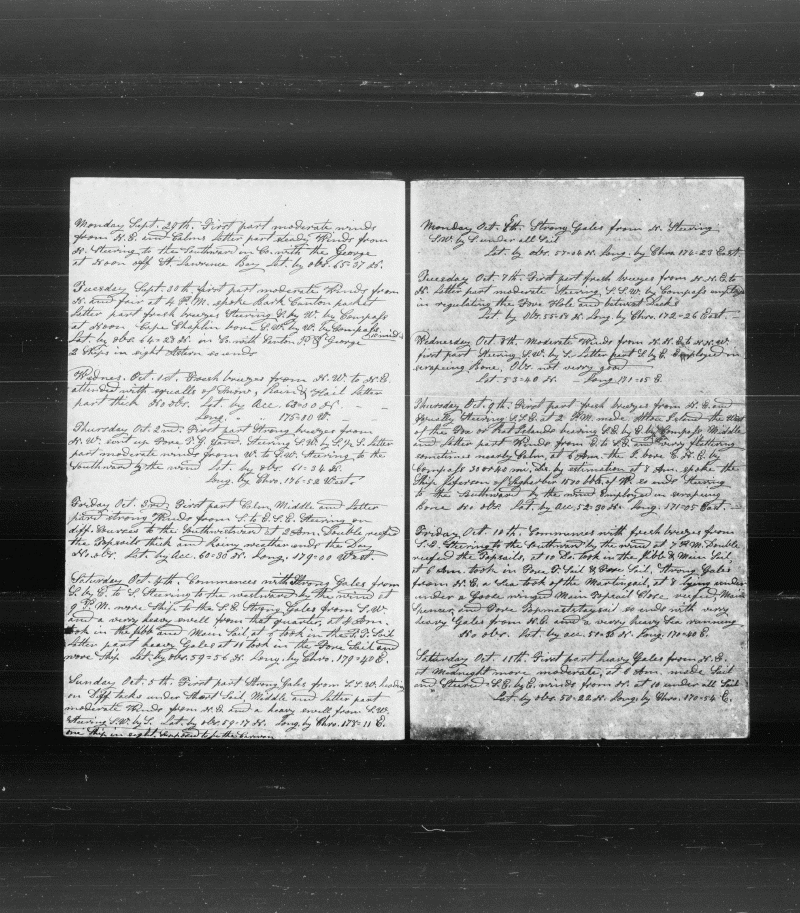 Monday Sept. 29th. First part moderate winds
from N.E. and Calms latter part steady Winds from
N. Steering to the Southward in Co. with the George
at Noon off St Lawrence Bay Lat. by obs. 65-37 N.
Tuesday Sept. 30th. first part moderate Winds from
N. and fair at 4 P.M. spoke Bark Canton packet
latter part fresh breezes Steering S. by W. by Compass
at Noon Cape Chaplin bore S.W. by W. by Compass
Lat by obs. 64-23 N. in Co. with Canton P. & George
2 Ships in sight so ends
Wednes. Oct. 1st. Fresh breezes from N.W. to N.E.
attended with squalls of Snow, Rain & Hail latter
part thick No obs. Lat. by acc. 63-00 N.
Long. " " 175-00 W.
Thursday Oct. 2nd. First part Strong breezes from
N.W. sent up Fore T.G. Yard. Steering S.W. by S. latter
part moderate winds from W. to S.W. Steering to the
Southward by the wind Lat. by obs. 61-34 N.
Long. by Chro. 176-52 West.
Friday Oct. 3rd. First part Calm, Middle and latter
part strong Winds from S. to E.S.E. Steering on
diff. Courses to the Southwestward at 2 Am. Double reefed
the Topsails thick and Rainy weather ends the Day
No obs. Lat. by acc. 60-36 N. Long. 179-00 West.
Saturday Oct. 4th. Commences with Strong Gales from
S. by E. to S. Steering to the westward by the wind at
9 P.M. wore Ship to the S.E. Strong Gales from S.W.
and a very heavy swell from that quarter, at 4 Am.
took in the Jibb and Main Sail at 5 took in the Sail
latter part heavy Gales at 11 took in the Fore Sail and
wore Ship Lat. by obs 59-56 N. Long. by Chro. 179-40 E.
Sunday Oct. 5th. First part Strong Gales from S.S.W. heading
on Diff tacks under Short Sail, Middle and latter part
moderate Winds from N.E. and a heavy swell from S.W.
Steering S.W. by S. Lat. by obs 59-17 N. Long by Chro. 178-11 E.
one Ship in sight. supposed to be the German
Monday Oct. 6th. Strong Gales from N. Steering
S.W. by S under all Sail
Lat. by obs. 57-04 N. Long. by Chro. 174-23 East
Tuesday Oct. 7th. First part fresh breezes from N.N.E. to
N. Latter part moderate Steering S.S.W. by Compass employed
in regulating the Fore Hole and between Decks
Lat. by Obs. 55-18 N. Long. by Chro. 172-26 East
Wednesday Oct. 8th. Moderate Winds from N.N.E. & N.N.W.
first part Steering S.W. by S. Latter part S. by E. Employed in
scraping Bone. Obs. not very good
Lat. 53-40 N. Long 171-15 E.
Thursday Oct. 9th. First part fresh breezes from N.E. and
Squally Steering S.S.E. at 2 P.M. made Island the West
of the Fox or Rat Islands bearing S.E. by E. by Compass Middle
and latter part Winds from E. to S.E. and very
sometimes nearly Calm, at 6 Am. the I. bore E.N.E. by
Compass 30 or 40 mi. Dis. by estimation at 8 Am. spoke the
Ship Jefferson of Sag harbor 1850 bbls of Oil so ends Steering
to the Southward by the wind Employed in scraping
Bone. No obs. Lat. by acc. 52-30 N. Long. 171-05 East
Friday Oct. 10th. Commences with fresh breezes from
S.E. Steering to the Southward by the wind at 7 P.M. Double
reefed the Topsails, at 10 Do. took in the Jibb & Main Sail
at 6 Am. took in Fore T. Sail & Fore Sail. Strong Gales
from N.E. a Sea took of the Martingail, at 8 Lying under
under a Goose winged Main Topsail Close reefed, Main
Spencer, and Fore Topmaststaysail so ends with very
heavy Gales from N.E. and a very heavy Sea running
No obs. Lat. by acc. 50-46 N. Long. 170-40 E.
Saturday Oct. 11th. First part heavy Gales from N.E.
at Midnight more moderate, at 6 Am. made Sail
and Steered S.E. by E. winds from N. at 10 under all Sail
Lat. by obs. 50-22 N. Long. by Chro. 170-54 E.